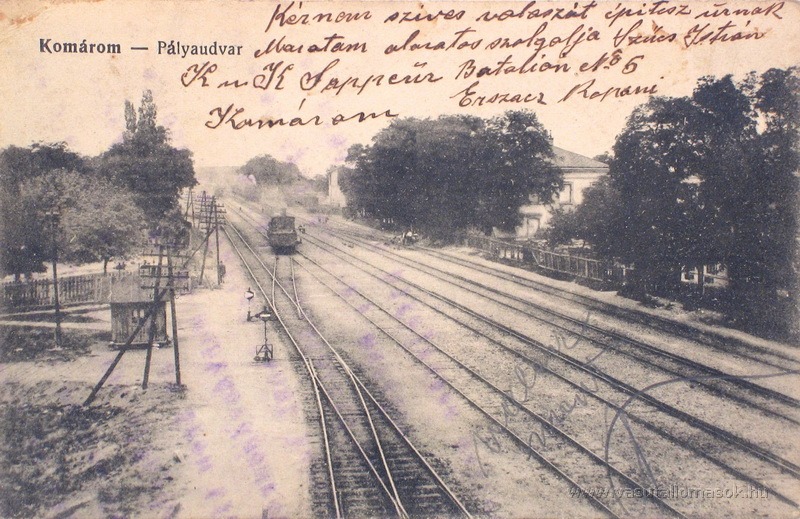 Komárom — Pályaudvar
Kérnem szives valaszát épitesz úrnak
Maratam alaratos szolgálja Szűcs István
K u K Sappeur Batalión No 5
Erszacz Kopani
Komárom
www.vasutallomasok.hu